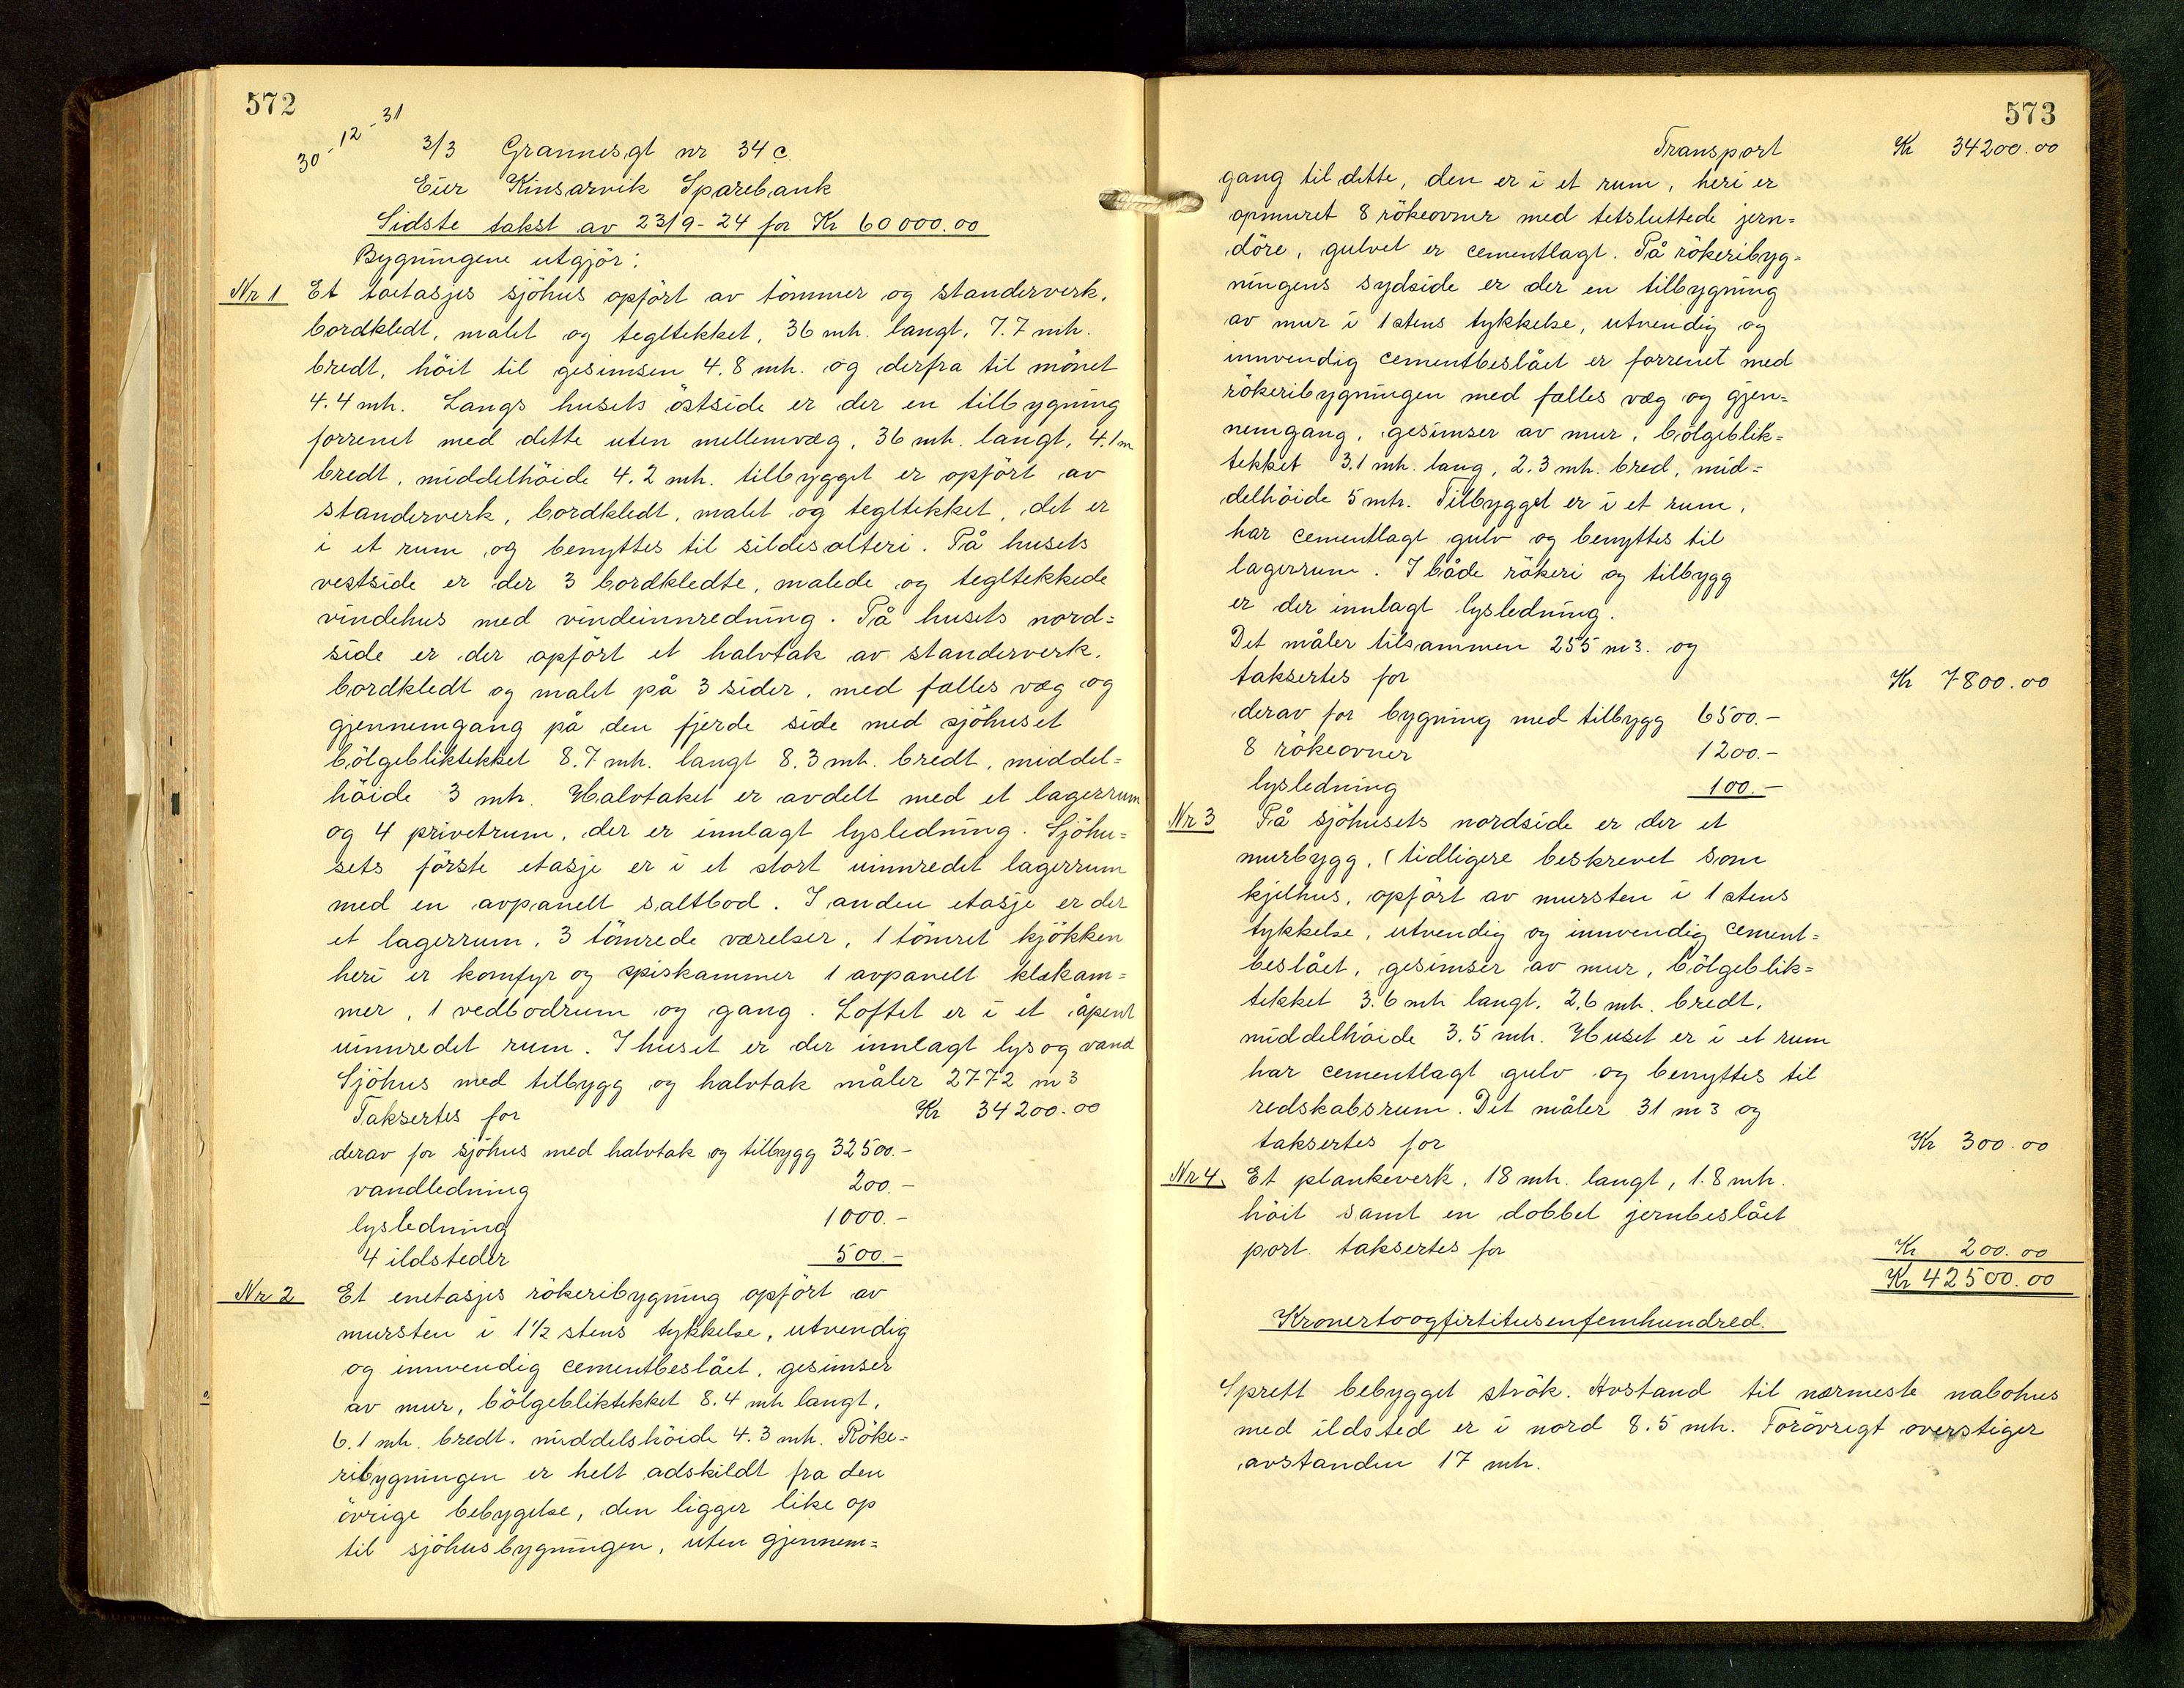 572
30-12-31
3/3 Grannesgt nr 34 c.
Eier Kinsarvik Sparebank
Sidste takst av 23/9-24 for Kr 60000.00
Bygningene utgjör:
Nr 1 Et toetasjes sjöhus opfört av tömmer og standerverk,
bordkledt, malet og tegltekket, 36 mtr. langt, 7.7 mtr.
bredt, höit til gesimsen 4.8 mtr. og derfra til mönet
4.4 mtr. Langs husets östside er der en tilbygning
forrenet med dette uten mellemvæg, 36 mtr. langt, 4.1 m
bredt, middelhöide 4.2 mtr. tilbygget er opfört av
standerverk, bordkledt, malet og tegltekket, det er
i et rum og benyttes til sildesalteri. På husets
vestside er der 3 bordkledte, malede og tegltekkede
vindehus med vindeinnredning. På husets nord=
side er der opfört et halvtak av standerverk,
bordkledt og malet på 3 sider, med fælles væg og
gjennemgang på den fjerde side med sjöhuset
bölgebliktekket 8.7 mtr. langt 8.3 mtr. bredt, middel=
höide 3 mtr. Halvtaket er avdelt med et lagerrum
og 4 privetrum, der er innlagt lysledning. Sjöhu=
sets förste etasje er i et stort uinnredet lagerrum
med en avpanelt saltbod. I anden etasje er der
et lagerrum, 3 tömrede værelser, 1 tömret kjökken
heri er komfyr og spiskammer 1 avpanelt klækam=
mer, 1 vedbodrum og gang. Loftet er i et åpent
uinnredet rum. I huset er der innlagt lys og vand
Sjöhus med tilbygg og halvtak måler 2772 m3
Taksertes for Kr 34200.00
derav for sjöhus med halvtak og tilbygg 32500.-
vandledning 200.-
lysledning 1000.-
4 ildsteder 500.-
Nr 2 Et enetasjes rökeribygning opfört av
mursten i 1½ stens tykkelse, utvendig
og innvendig cementbeslået, gesimser
av mur, bölgebliktekket 8.4 mtr langt,
6.1 mtr. bredt, middelshöide 4.3 mtr. Röke=
ribygningen er helt adskildt fra den
övrige bebygelse, den ligger like op
til sjöhusbygningen, uten gjennem=
573
Transport Kr 34200.00
gang til dette, den er i et rum, heri er
opmuret 8 rökeovner med tetsluttede jern=
döre, gulvet er cementlagt. På rökeribyg=
ningens sydside er der en tilbygning
av mur i 1 stens tykkelse, utvendig og
innvendig cementbeslået er forrenet med
rökeribygningen med fælles væg og gjen=
nemgang, gesimser av mur, bölgeblik=
tekket 3.1 mtr. lang, 2.3 mtr. bred, mid=
delhöide 5 mtr. Tilbygget er i et rum,
har cementlagt gulv og benyttes til
lagerrum. I både rökeri og tilbygg
er der innlagt lysledning.
Det måler tilsammen 255 m3. og
taksertes for Kr 7800.00
derav for bygning med tilbygg 6500.-
8 rökeovner 1200.-
lysledning 100.-
Nr 3 På sjöhusets nordside er der et
murbygg, (tidligere beskrevet som
kjelhus, opfört av mursten i 1 stens
tykkelse, utvendig og innvendig cement=
beslået, gesimser av mur, bölgeblik=
tekket 3.6 mtr langt, 2,6 mtr. bredt,
middelhöide 3.5 mtr. Huset er i et rum
har cementlagt gulv og benyttes til
redskabsrum. Det måler 31 m3 og
taksertes for Kr 300.00
Nr 4. Et plankeverk, 18 mtr. langt, 1.8 mtr.
höit samt en dobbel jernbeslået
port. taksertes for Kr 200.00
Kr 42500.00
Kronertoogfirtitusenfemhundred.
Sprett bebygget strök. Avstand til nærmeste nabohus
med ildsted er i nord 8.5 mtr. Forövrigt overstiger
avstanden 17 mtr.